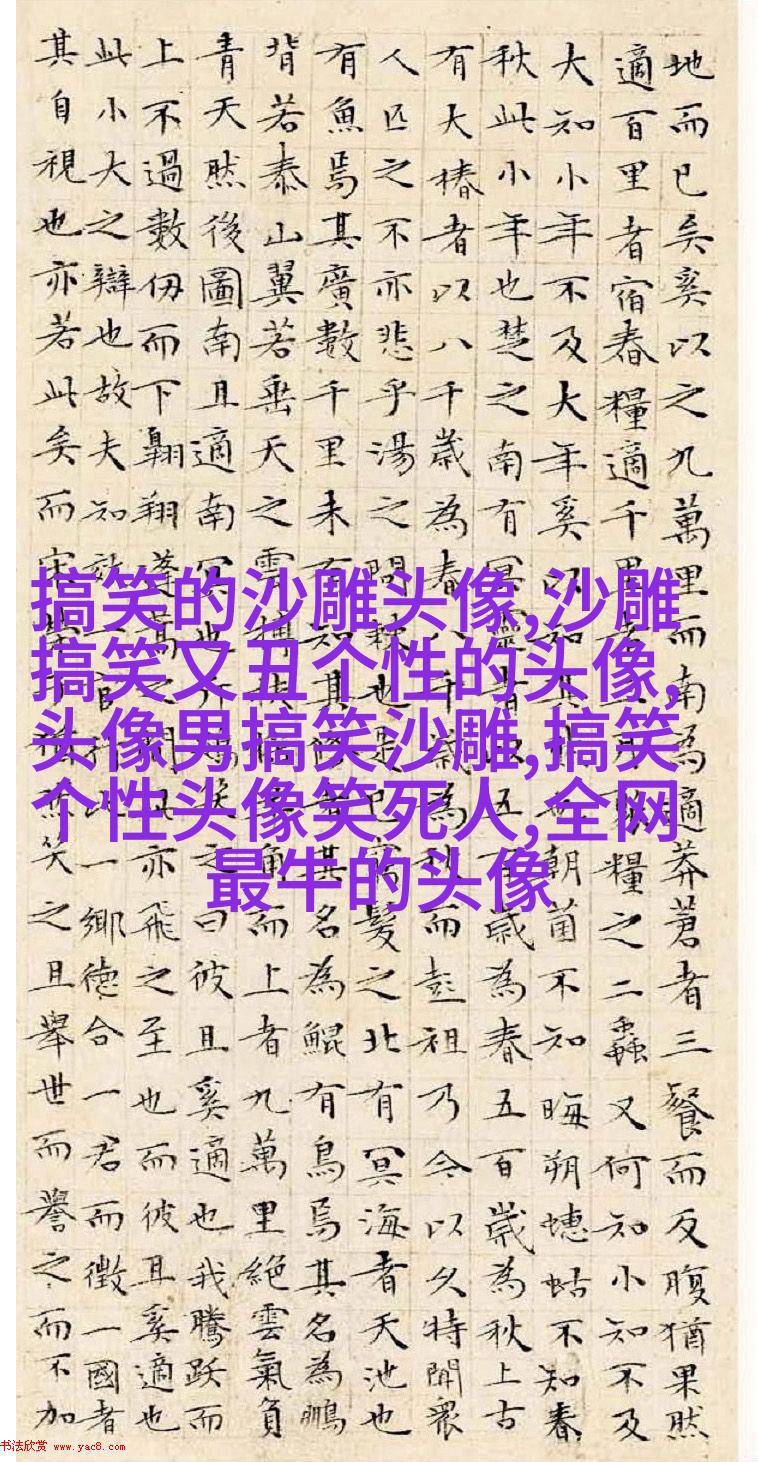 地而已矣奚以之九萬里而南為適莽蒼者三餐而反腹猶果然
適百里者宿舂糧適千里者三月聚糧之二蟲又何知小知不及
大知小年不及大年奚以知其然也朝菌不知晦朔蟪蛄不知春
秋此小年也楚之南有冥靈者以五百歲為春五百歲為秋上古
有大椿者以八千歲為春八千歲為秋而彭祖乃今以久特聞眾
人匹之不亦悲乎湯之問棘也是已窮髮之北有冥海者天池也
有魚焉其廣數千里未有知其脩者其名為鯤有鳥焉其名為鵬
背若泰山翼若垂天之雲摶扶搖羊角而上者九萬里絕雲氣負
青天然後圖南且適南冥也斥鴳笑之曰彼且奚適也我騰躍而
上不過數仞而下翱翔蓬蒿之間此亦飛之至也而彼且奚適也
此小大之辯也故夫知效一官行比一鄉德合一君而徵一國者
其自視也亦若此矣而宋榮子猶然笑之且舉世而譽之而不加
搞笑的沙雕头像,沙雕
搞笑又丑个性的头像,
头像男搞笑沙雕,搞笑
个性头像笑死人,全网
最牛的头像
书法欣赏 www.yac8.com